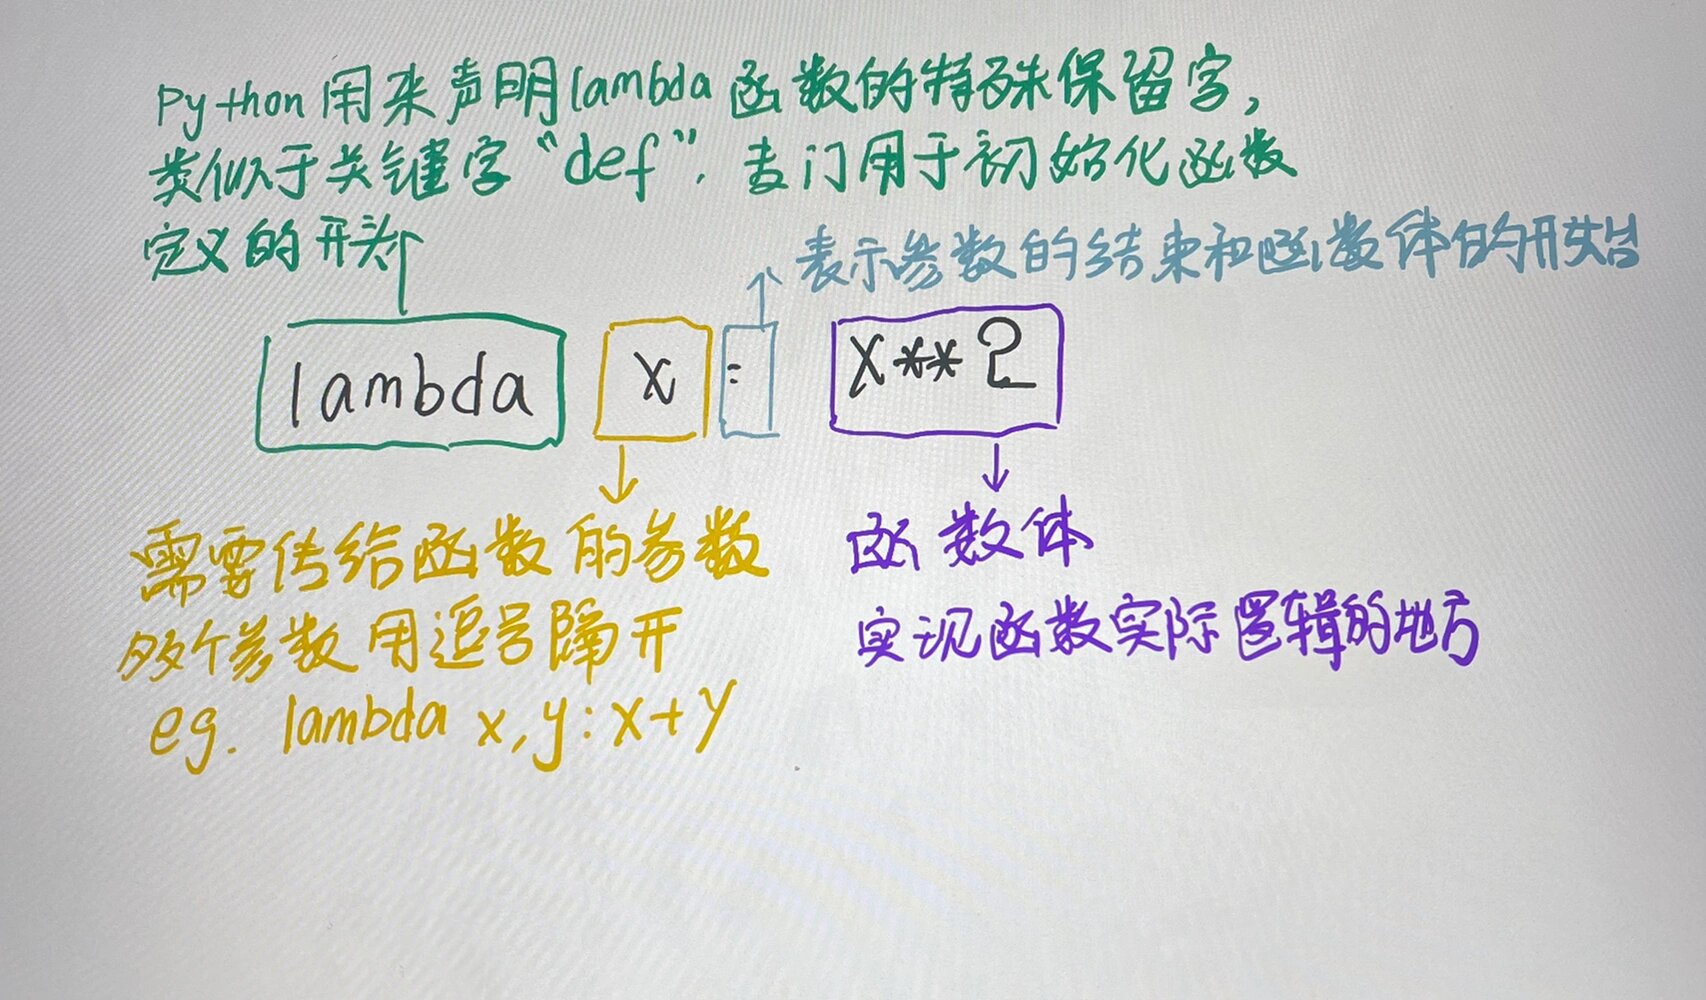 Python用来声明lambda函数的特殊保留字,
类似于关键字“def”,专门用于初始化函数
定义的开头
表示参数的结束和函数体的开始
lambda x : x**2
需要传给函数的参数
多个参数用逗号隔开
eg. lambda x,y:x+y
函数体
实现函数实际逻辑的地方